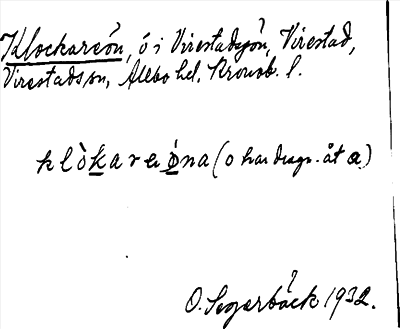 Klockareön, ö i Virestadsjön, Virestad,
Virestads sn, Allbo hd, Kronob. l.
klòkareøna (o har dragn. åt a)
O. Segerbäck 1932.